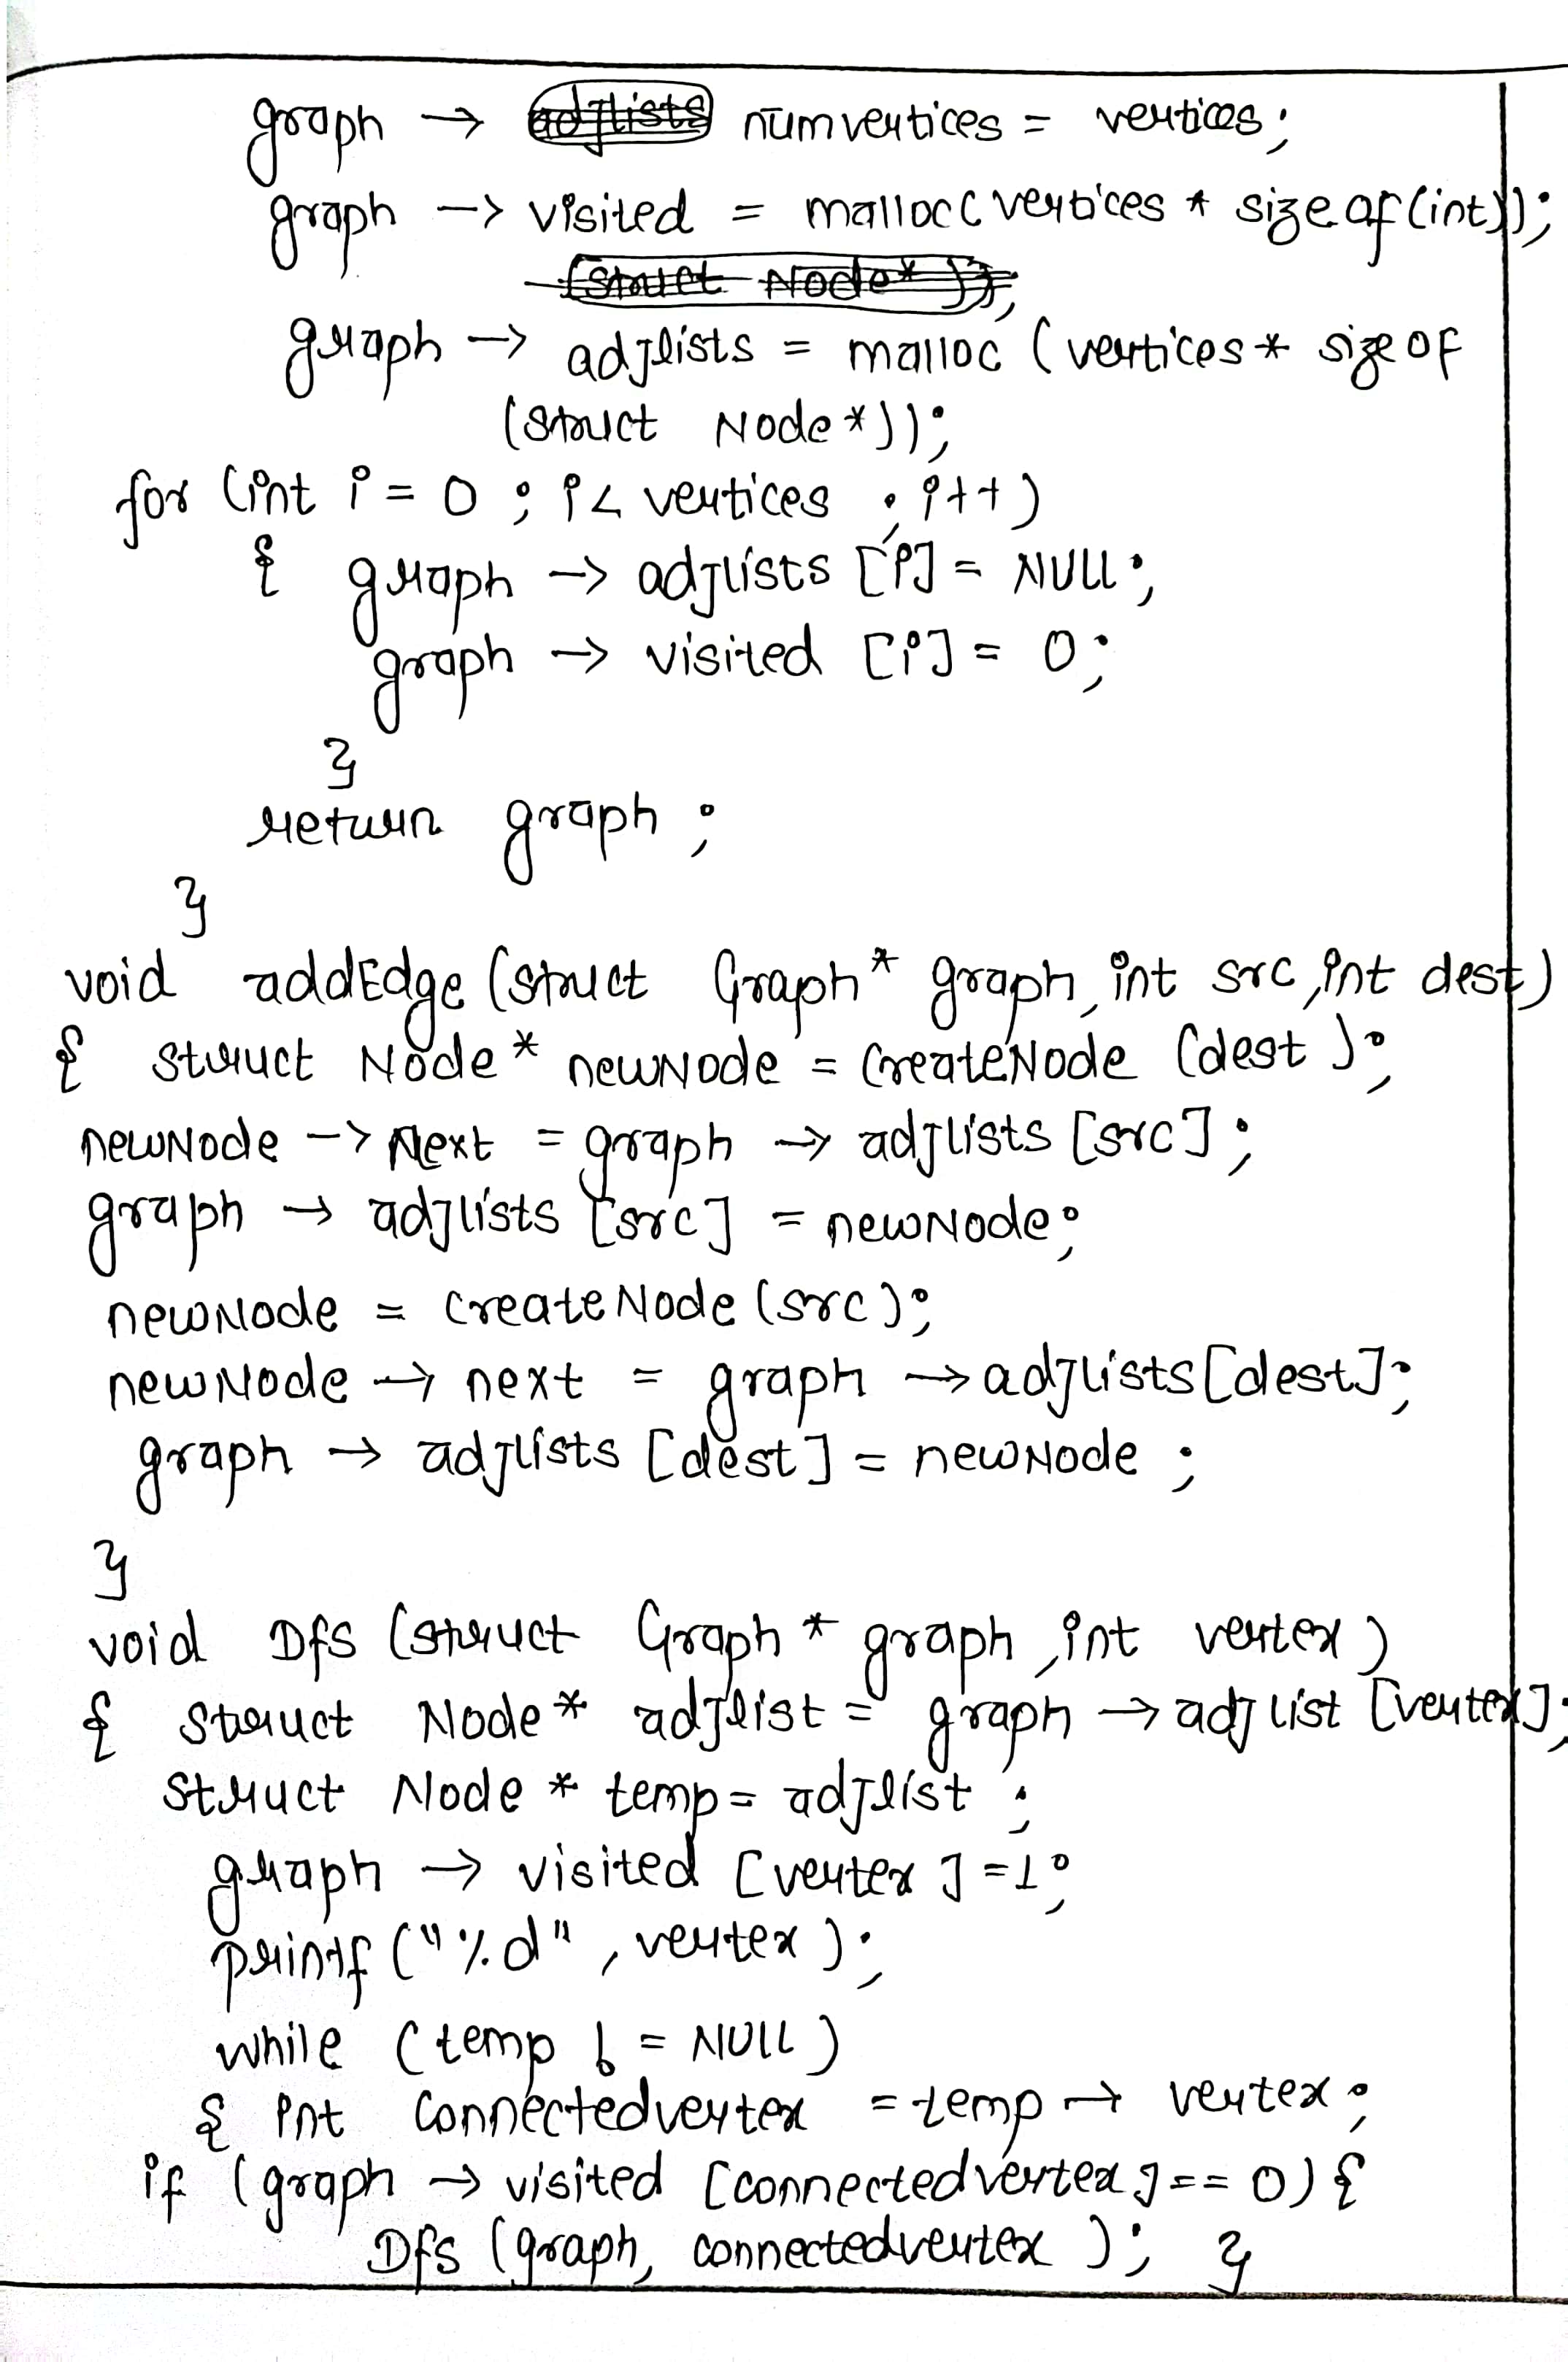 graph → adjlists numvertices = vertices;
graph -> visited = malloc(vertices * sizeof(int));
(struct Node*));
graph -> adjlists = malloc (vertices * sizeof
(struct Node*));
for (int i = 0 ; i < vertices ; i++)
{ graph -> adjlists [i] = NULL;
graph -> visited [i] = 0;
}
return graph ;
}
void addEdge (struct Graph* graph, int src, int dest)
{ struct Node* newNode = CreateNode (dest );
newNode -> Next = graph -> adjlists [src];
graph → adjlists [src] = newNode;
newNode = createNode (src);
newNode → next = graph → adjlists[dest];
graph → adjlists [dest] = newNode ;
}
void Dfs (struct Graph * graph, int vertex)
{ struct Node* adjlist = graph → adjlist [vertex];
struct Node * temp = adjlist ;
graph → visited [vertex ] = 1;
printf ("%d" , vertex );
while (temp != NULL)
{ int connectedvertex = temp → vertex;
if (graph → visited [connectedvertex] == 0) {
Dfs (graph, connectedvertex ); }